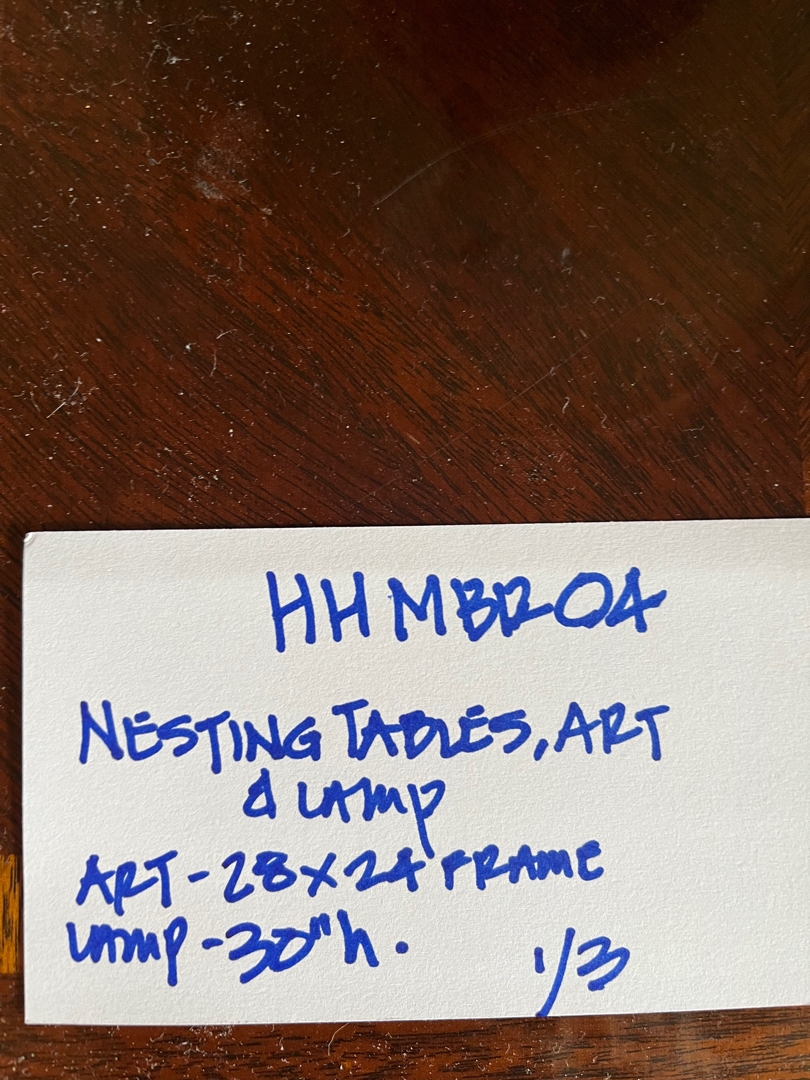 HHMBR04
NESTING TABLES, ART
& LAMP
ART - 28 X 24 FRAME
LAMP - 30" h.
1/3